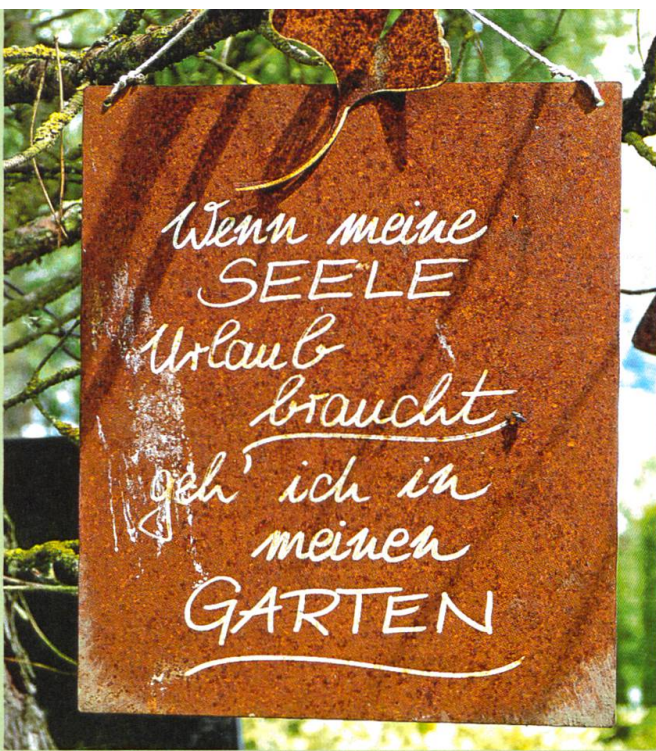 Wenn meine
SEELE
Urlaub
braucht
geh' ich in
meinen
GARTEN